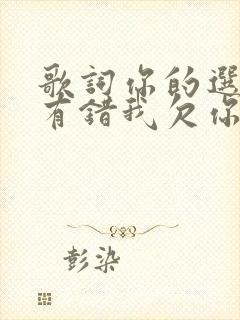 歌詞你的選
有錯我欠你
彭染